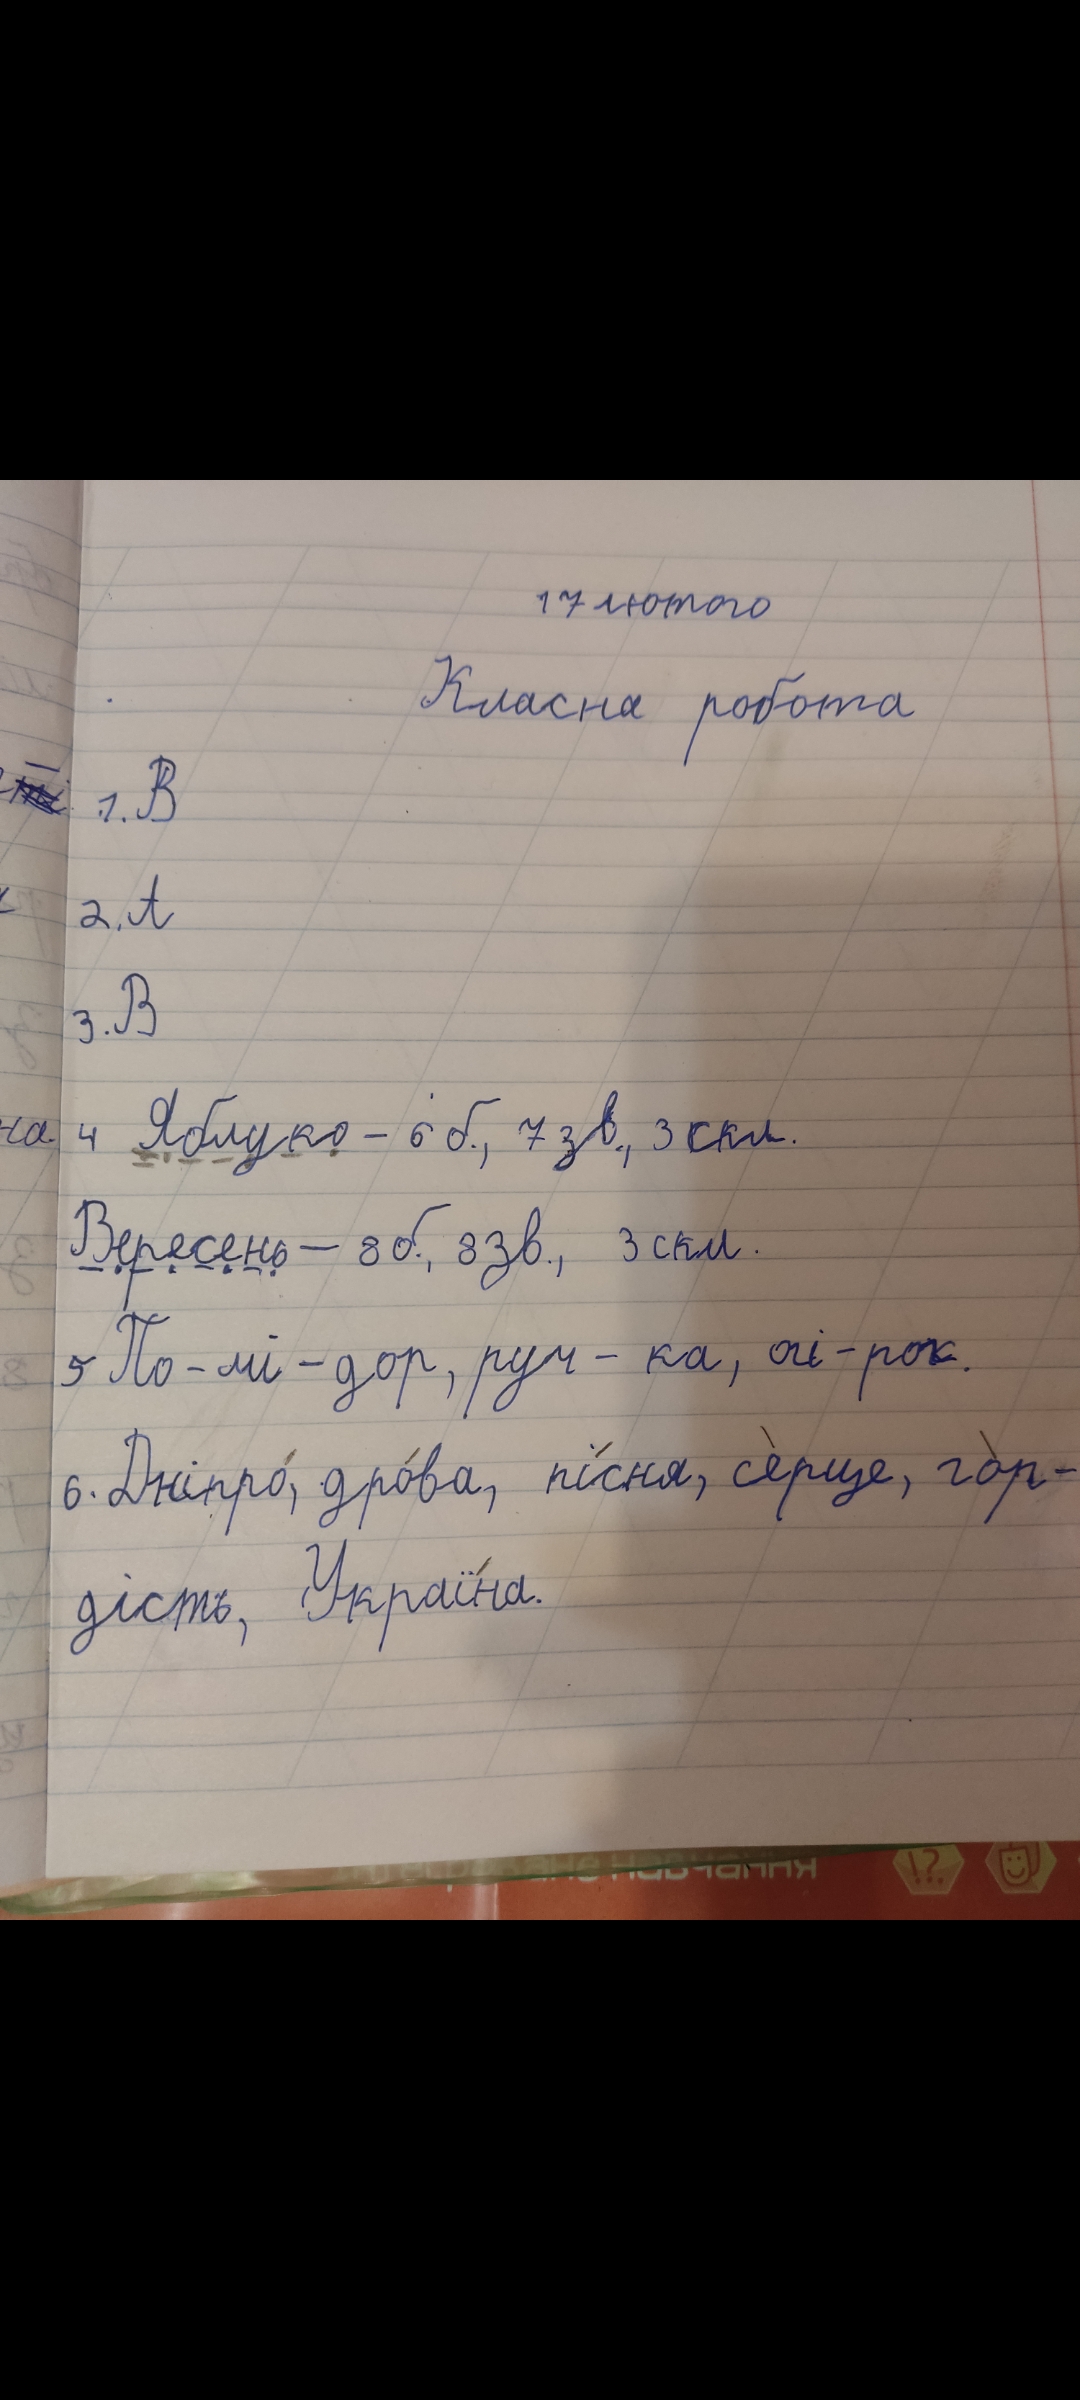 17 лютого
Класна робота
1. В
2. А
3. В
на. 4 Яблуко – 6 б., 7 зв., 3 скл.
Вересень – 8 б., 8 зв., 3 скл.
5 По-мі-дор, руч-ка, огі-рок.
6. Дніпро́, дро́ва, пі́сня, сѐрце, го̀р-
дість, Украї́на.